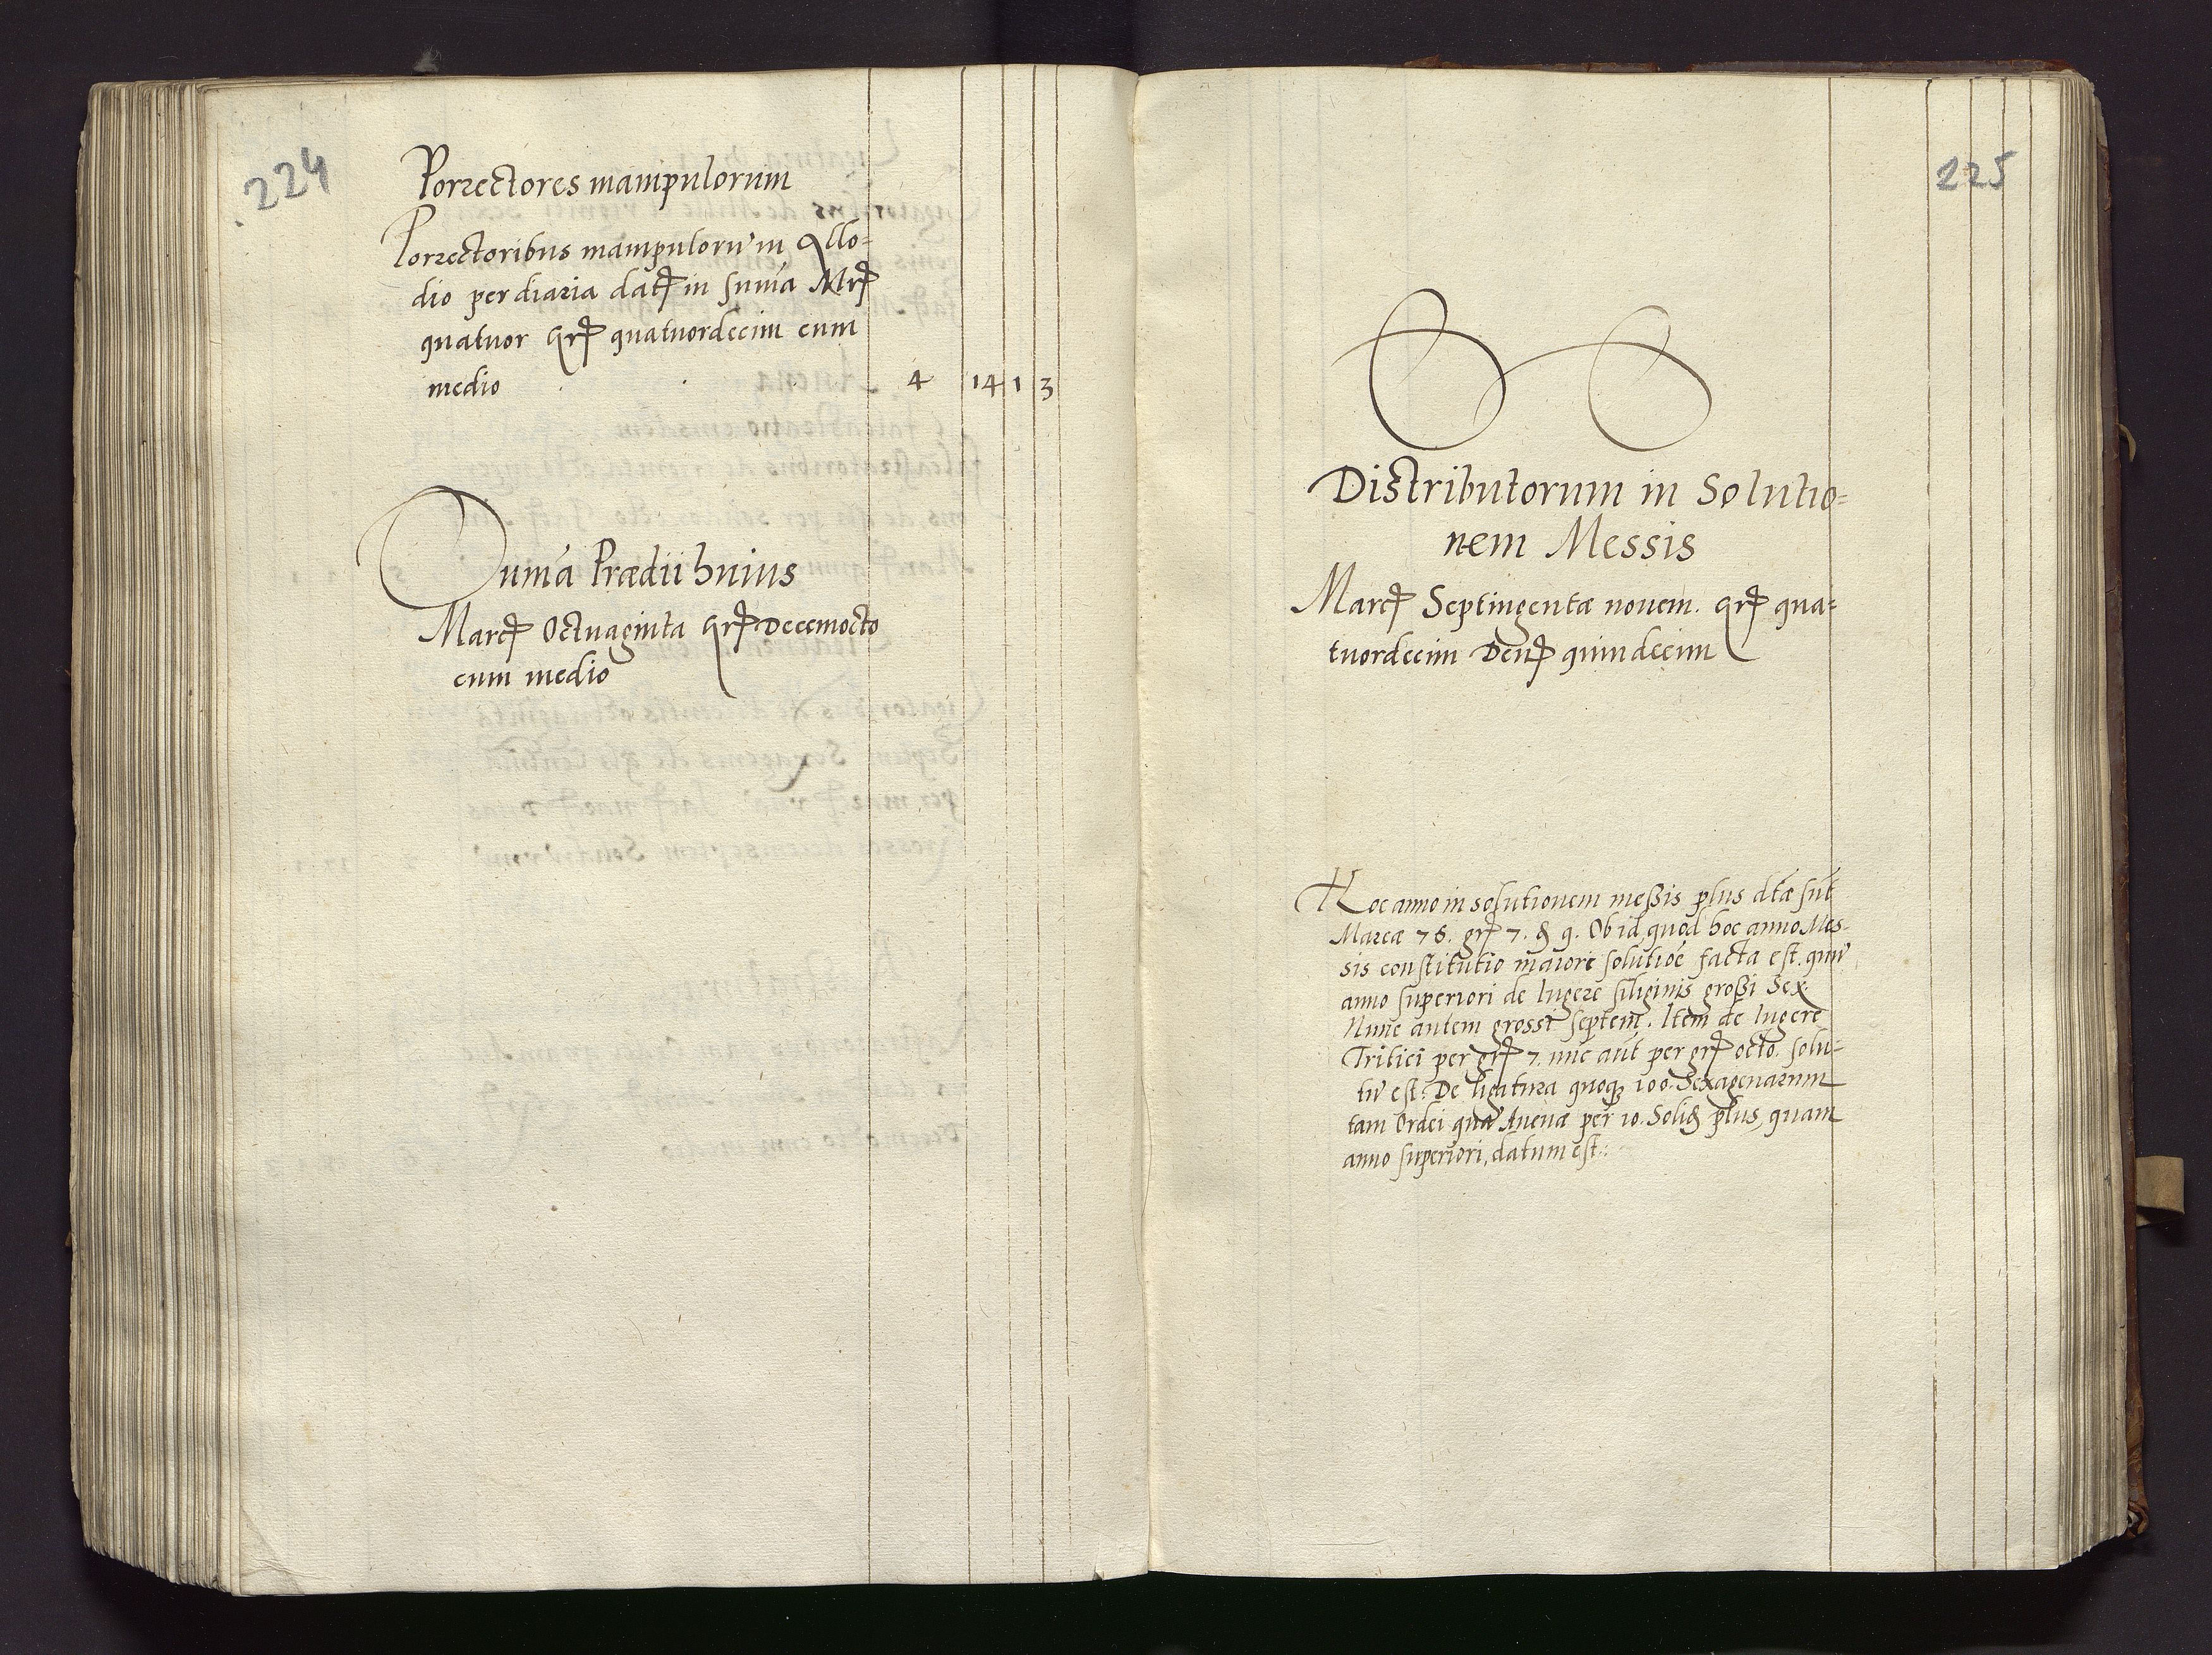 224
Porrectores manipulorum
Porrectoribus manipuloru' in Allo=
dio per diaria datꝭ in suma Mrꝭ
quatuor grꝭ quatuordecim cum
medio 4 14 1 3
Suma Prædii huius
Marcꝭ Octuaginta grꝭ Decemocto
cum medio
225
Distributorum in Solutio=
nem Messis
Marcꝭ Septingentæ novem. grꝭ qua=
tuordecim Denꝭ quindecim
Hoc anno in solutionem messis plus dtæ sut
Marcæ 76. grꝭ 7. ₰ 9. Ob id, quod hoc anno Mes-
sis constitutio maiore solutioe facta est. qum
anno superiori de Iugere siliginis grossi Sex.
Nunc autem grossi septem. Item de Iugere
Tritici per grꝭ 7. nuc aut per grꝭ octo. solu=
tu' est. De ligatura quoqꝫ 100. Sexagenarum
tam Ordei qua' Avenæ per 10. Solid plus, quam
anno superiori, datum est.